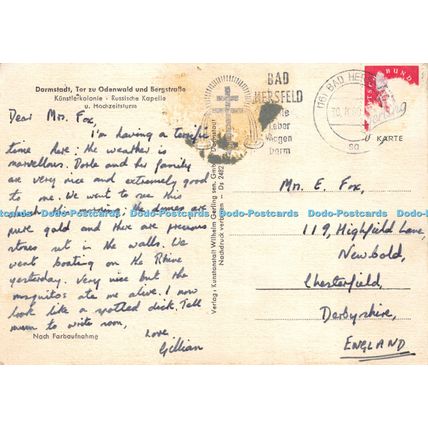 Darmstadt, Tor zu Odenwald und Bergstraße
Künstlerkolonie · Russische Kapelle
u. Hochzeitsturm
Dear Mrs. Fox,
I'm having a terrific
time here: the weather is
marvellous. Dorle and her family
are very nice and extremely good
to me. We went to see this
church this morning: the domes are
pure gold and there are precious
stones set in the walls. We
went boating on the Rhine
yesterday. Very nice but the
mosquitos ate me alive. I now
look like a spotted dick. Tell
mum to write soon,
love
Gillian
Nach Farbaufnahme
Verlag: Kunstanstalt Wilhelm Gerling sen. GmbH Darmstadt
Nachdruck verboten Ds 2482
BAD
HERSFELD
Leber
Magen
Darm
(16) BAD HE
BUND
KARTE
Mrs. E. Fox,
119, Highfield Lane,
Newbold,
Chesterfield,
Derbyshire,
ENGLAND
Dodo-Postcards Dodo-Postcards Dodo-Postcards Dodo-Postcards Dodo-Postcards